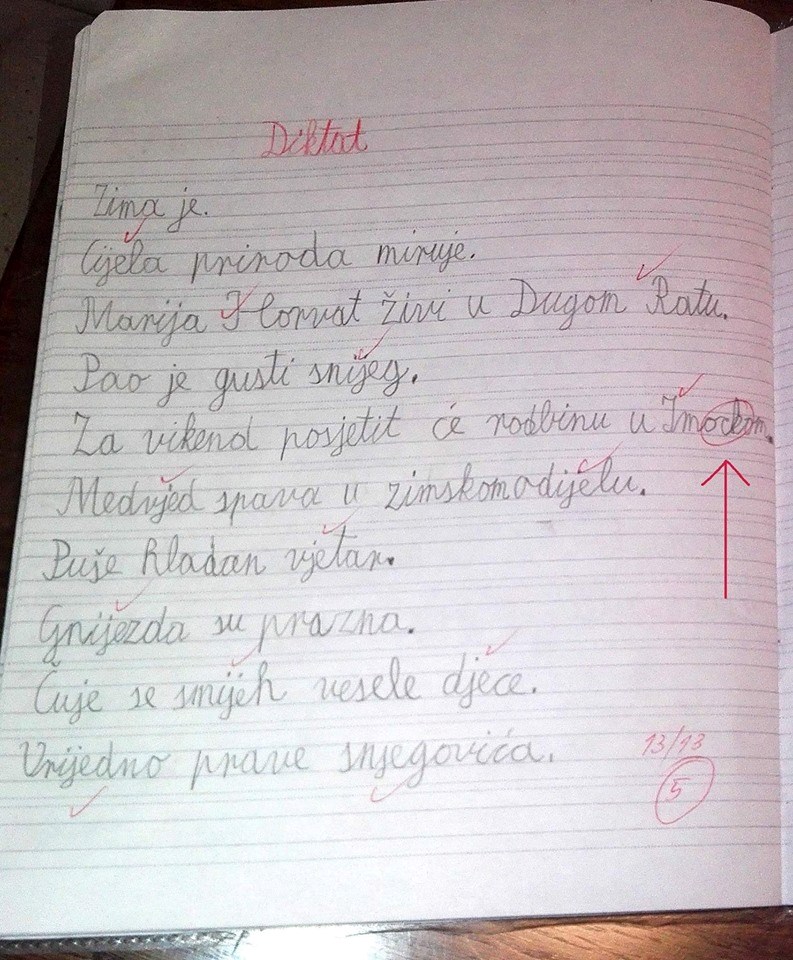 Diktat
Zima je.
Cijela priroda miruje.
Marija Horvat živi u Dugom Ratu.
Pao je gusti snijeg.
Za vikend posjetit će rodbinu u Imockom.
Medvjed spava u zimskom odijelu.
Puše hladan vjetar.
Gnijezda su prazna.
Čuje se smijeh vesele djece.
Vrijedno prave snjegovića.
13/13
5